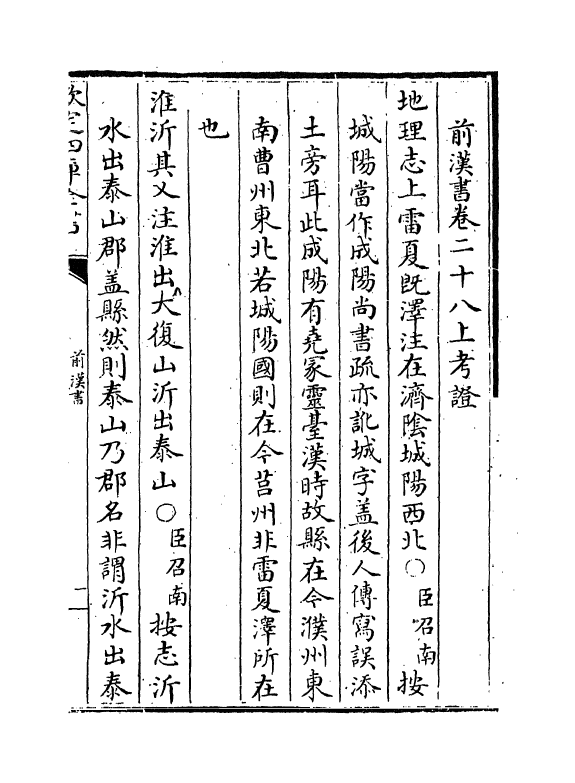 前漢書卷二十八上考證
地理志上雷夏既澤注在濟陰城陽西北○臣召南按
城陽當作成陽尚書疏亦訛城字盖後人傳寫誤添
土旁耳此成陽有堯冢靈臺漢時故縣在今濮州東
南曹州東北若城陽國則在今莒州非雷夏澤所在
也
淮沂其乂注淮出大復山沂出泰山○臣召南按志沂
水出泰山郡盖縣然則泰山乃郡名非謂沂水出泰
欽定四庫全書
前漢書
二